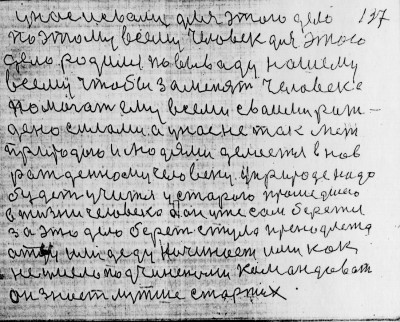 у нас искали для этого дело 137
поэтому всему человек для этого
дело родился по выводу нашему
всему чтобы заменят человека
помогат ему всеми своими рож-
дено силами а у нас не так мет
природою и людями делается в нов
рожденному человеку. у природе надо
будет учится у старого прошедшего
в жизни человека он уже сам берется
за это дело берет стула преподавателя
отцу или деду начинает или как
не умело подчинёному командоват
он знает лутше старших.